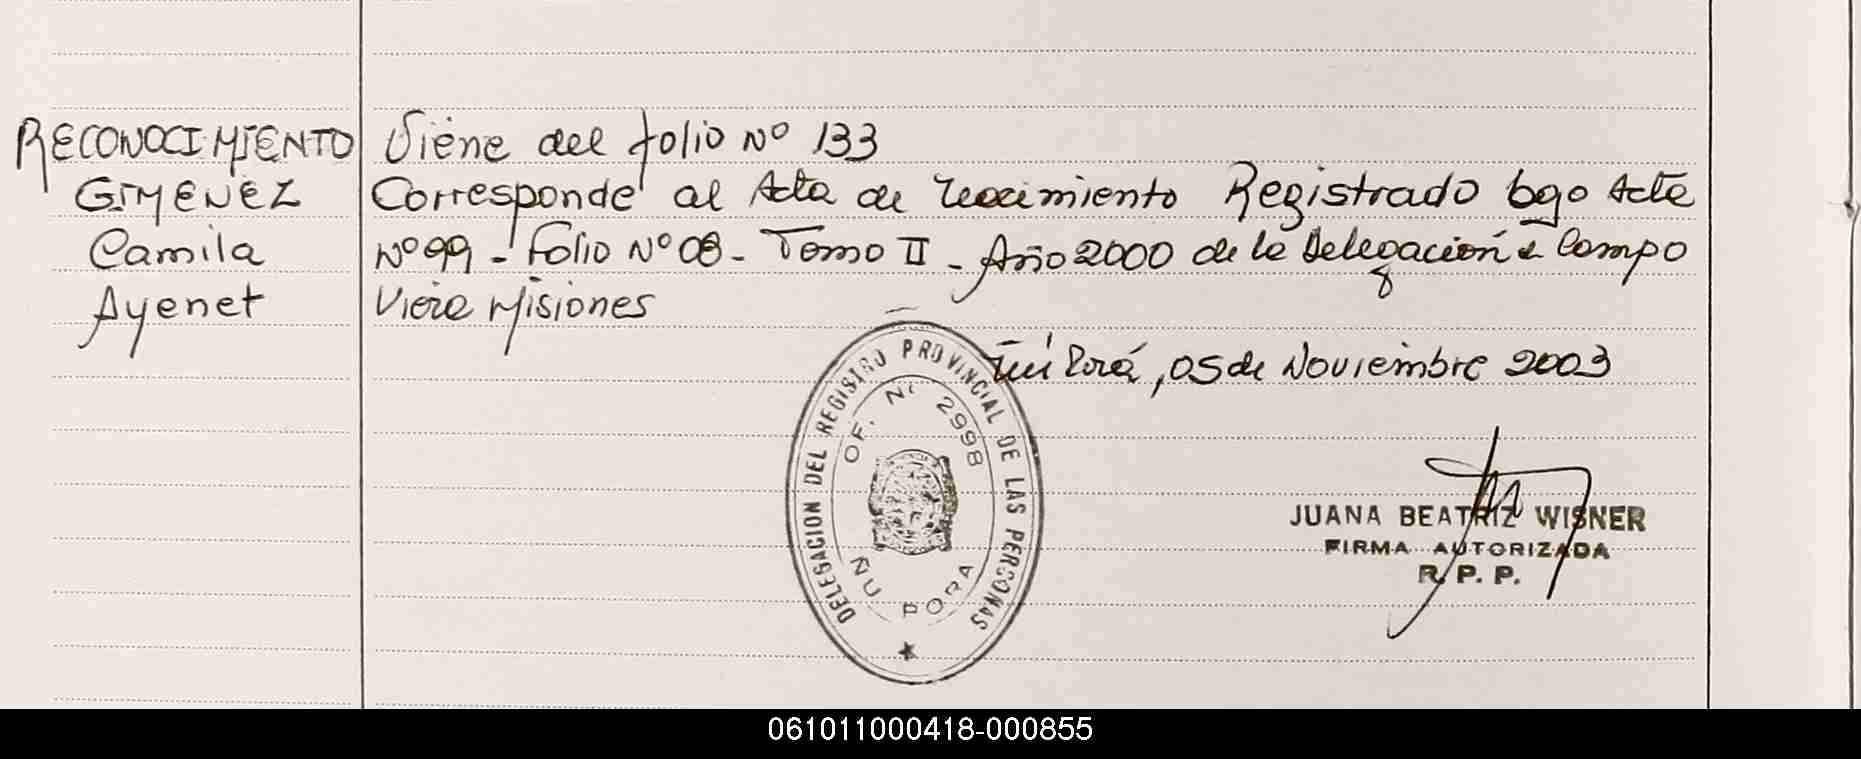 RECONOCIMIENTO
GIMENEZ
Camila
Ayenet
Viene del folio Nº 133
Corresponde al Acta de Registrado bajo Acta
Nº 99 - Folio Nº 08 - Tomo II - Año 2000 de la Delegación de Campo
Viera Misiones
Ñú Porá, 05 de Noviembre 2003
DELEGACION DEL REGISTRO PROVINCIAL DE LAS PERSONAS
OF. Nº 2998
ÑU PORA
JUANA BEATRIZ WISNER
FIRMA AUTORIZADA
R. P. P.
061011000418-000855